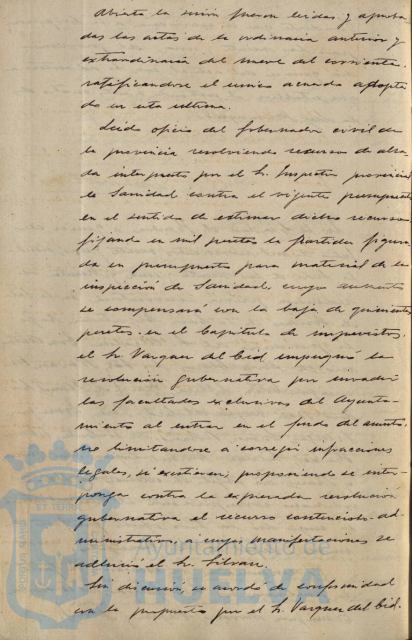 Abierta la sesión fueron leidas y aproba
das las actas de la ordinaria anterior y
extraordinaria del nueve del corriente,
ratificandose el unico acuerdo adopta
do en esta ultima.
Leido oficio del Gobernador civil de
la provincia resolviendo recurso de alza
da interpuesto por el Sr. Inspector provincial
de Sanidad contra el vigente presupuesto
en el sentido de estimar dicho recurso
fijando en mil pesetas la partida figura
da en presupuesto para material de la
inspección de Sanidad, cuyo aumento
se compensará con la baja de quinientas
pesetas en el Capitulo de imprevistos,
el Sr. Vazquez del Cid impugnó la
resolución gubernativa por invadir
las facultades exclusivas del Ayunta-
miento al entrar en el fondo del asunto,
no limitandose a corregir infracciones
legales, si existieren, proponiendo se inter-
ponga contra la expresada resolucion
gubernativa el recurso contencioso-ad-
ministrativo, a cuyas manifestaciones se
adhirió el Sr.
Sin discusión se acordó de conformidad
con lo propuesto por el Sr. Vazquez del Cid.
Ayuntamiento de
HUELVA